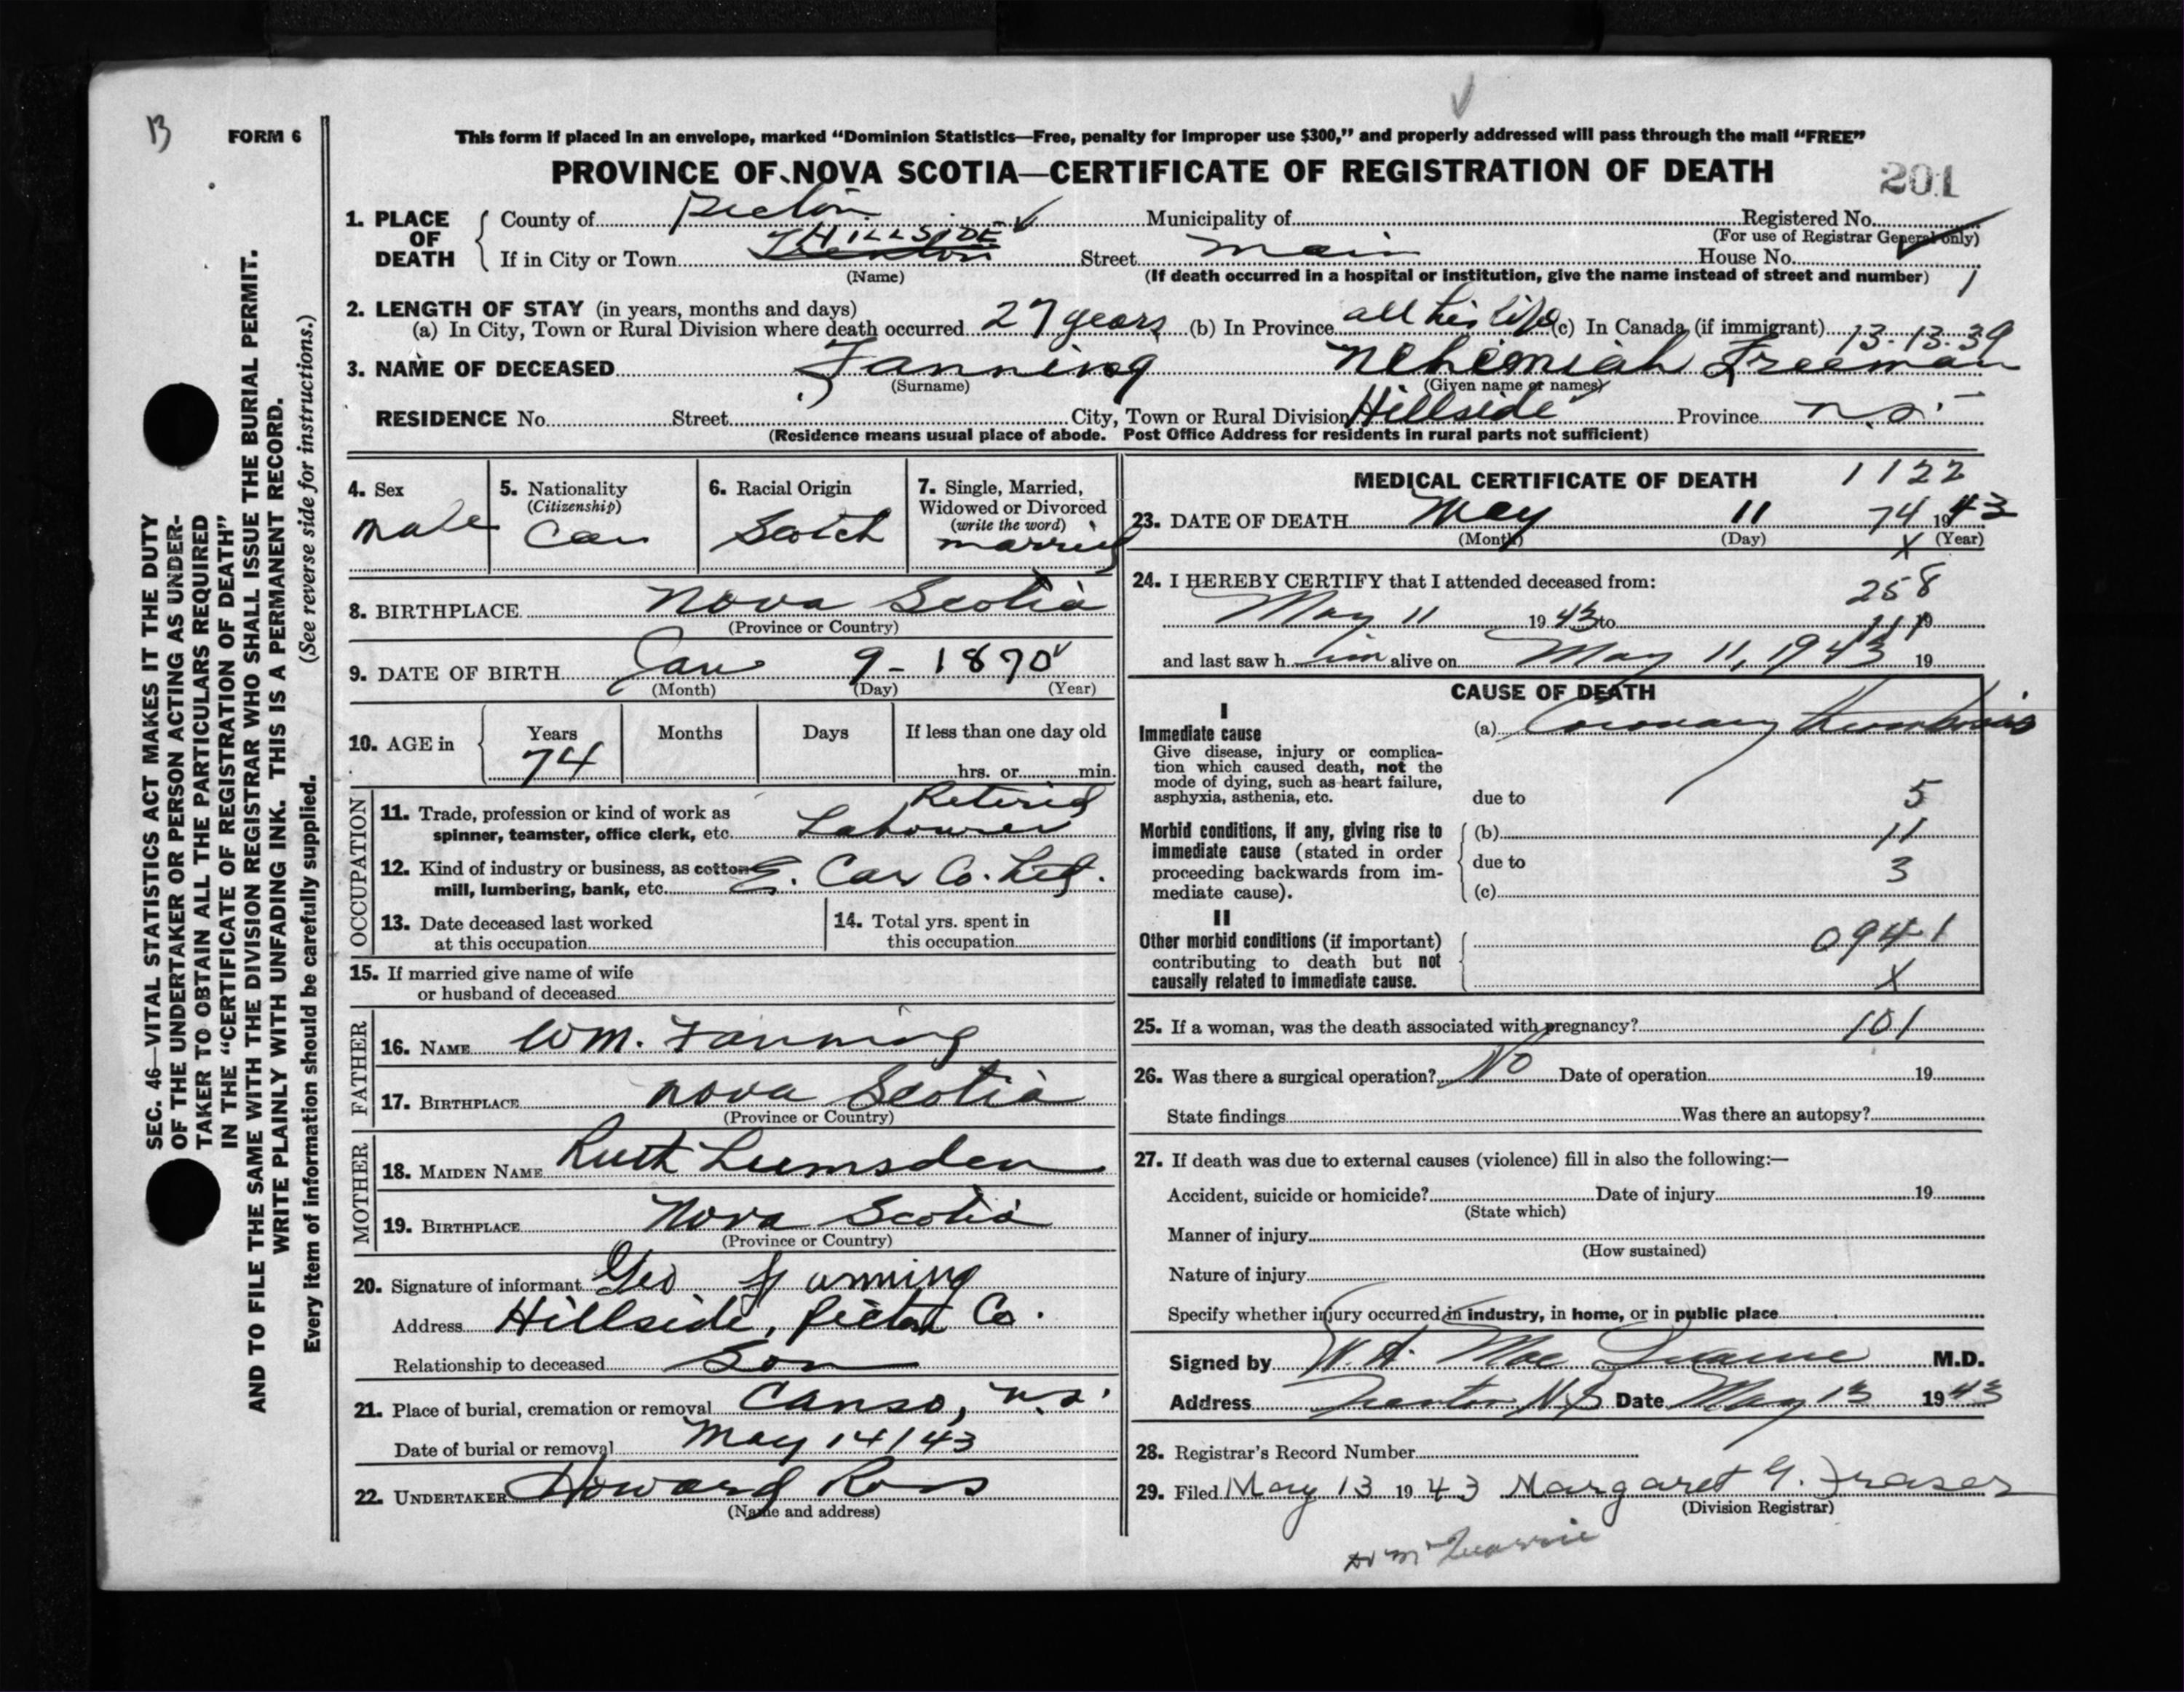 B
FORM 6
SEC. 46—VITAL STATISTICS ACT MAKES IT THE DUTY
OF THE UNDERTAKER OR PERSON ACTING AS UNDER-
TAKER TO OBTAIN ALL THE PARTICULARS REQUIRED
IN THE "CERTIFICATE OF REGISTRATION OF DEATH"
AND TO FILE THE SAME WITH THE DIVISION REGISTRAR WHO SHALL ISSUE THE BURIAL PERMIT.
WRITE PLAINLY WITH UNFADING INK. THIS IS A PERMANENT RECORD.
Every item of information should be carefully supplied. (See reverse side for instructions.)
This form if placed in an envelope, marked "Dominion Statistics—Free, penalty for improper use $300," and properly addressed will pass through the mail "FREE"
PROVINCE OF NOVA SCOTIA—CERTIFICATE OF REGISTRATION OF DEATH
201
1. PLACE OF DEATH County of Pictou Municipality of Registered No.
(For use of Registrar General only)
HILLSIDE
If in City or Town Trenton Street Main House No.
(Name) (If death occurred in a hospital or institution, give the name instead of street and number) 1
2. LENGTH OF STAY (in years, months and days)
(a) In City, Town or Rural Division where death occurred 27 years (b) In Province all his life (c) In Canada (if immigrant) 13-13-39
3. NAME OF DECEASED Fanning Nehemiah Freeman
(Surname) (Given name or names)
RESIDENCE No. Street City, Town or Rural Division Hillside Province N.S.
(Residence means usual place of abode. Post Office Address for residents in rural parts not sufficient)
4. Sex
Male
5. Nationality
(Citizenship)
Can
6. Racial Origin
Scotch
7. Single, Married,
Widowed or Divorced
(write the word)
married
8. BIRTHPLACE Nova Scotia
(Province or Country)
9. DATE OF BIRTH Jan 9 - 1870
(Month) (Day) (Year)
10. AGE in Years Months Days If less than one day old
74 hrs. or min.
OCCUPATION
11. Trade, profession or kind of work as Retired
spinner, teamster, office clerk, etc. Labourer
12. Kind of industry or business, as cotton
mill, lumbering, bank, etc. E. Car Co. Ltd.
13. Date deceased last worked
at this occupation
14. Total yrs. spent in
this occupation
15. If married give name of wife
or husband of deceased
FATHER
16. NAME Wm. Fanning
17. BIRTHPLACE Nova Scotia
(Province or Country)
MOTHER
18. MAIDEN NAME Ruth Lumsden
19. BIRTHPLACE Nova Scotia
(Province or Country)
20. Signature of informant Geo Fanning
Address Hillside, Pictou Co.
Relationship to deceased Son
21. Place of burial, cremation or removal Canso, N.S.
Date of burial or removal May 14/43
22. UNDERTAKER Howard Ross
(Name and address)
MEDICAL CERTIFICATE OF DEATH 1122
23. DATE OF DEATH May 11 74 1943
(Month) (Day) X (Year)
24. I HEREBY CERTIFY that I attended deceased from: 258
May 11 1943 to 19
and last saw him alive on May 11, 1943 19
CAUSE OF DEATH
I
Immediate cause
Give disease, injury or complica-
tion which caused death, not the
mode of dying, such as heart failure,
asphyxia, asthenia, etc.
(a) Coronary thrombosis
due to 5
Morbid conditions, if any, giving rise to
immediate cause (stated in order
proceeding backwards from im-
mediate cause).
(b) 11
due to 3
(c)
II
Other morbid conditions (if important)
contributing to death but not
causally related to immediate cause.
0941
X
25. If a woman, was the death associated with pregnancy? 101
26. Was there a surgical operation? No Date of operation 19
State findings Was there an autopsy?
27. If death was due to external causes (violence) fill in also the following:—
Accident, suicide or homicide? Date of injury 19
(State which)
Manner of injury
(How sustained)
Nature of injury
Specify whether injury occurred in industry, in home, or in public place
Signed by W. A. Mac M.D.
Address Trenton N.S Date May 13 1943
28. Registrar's Record Number
29. Filed May 13 1943 Margaret G. Fraser
(Division Registrar)